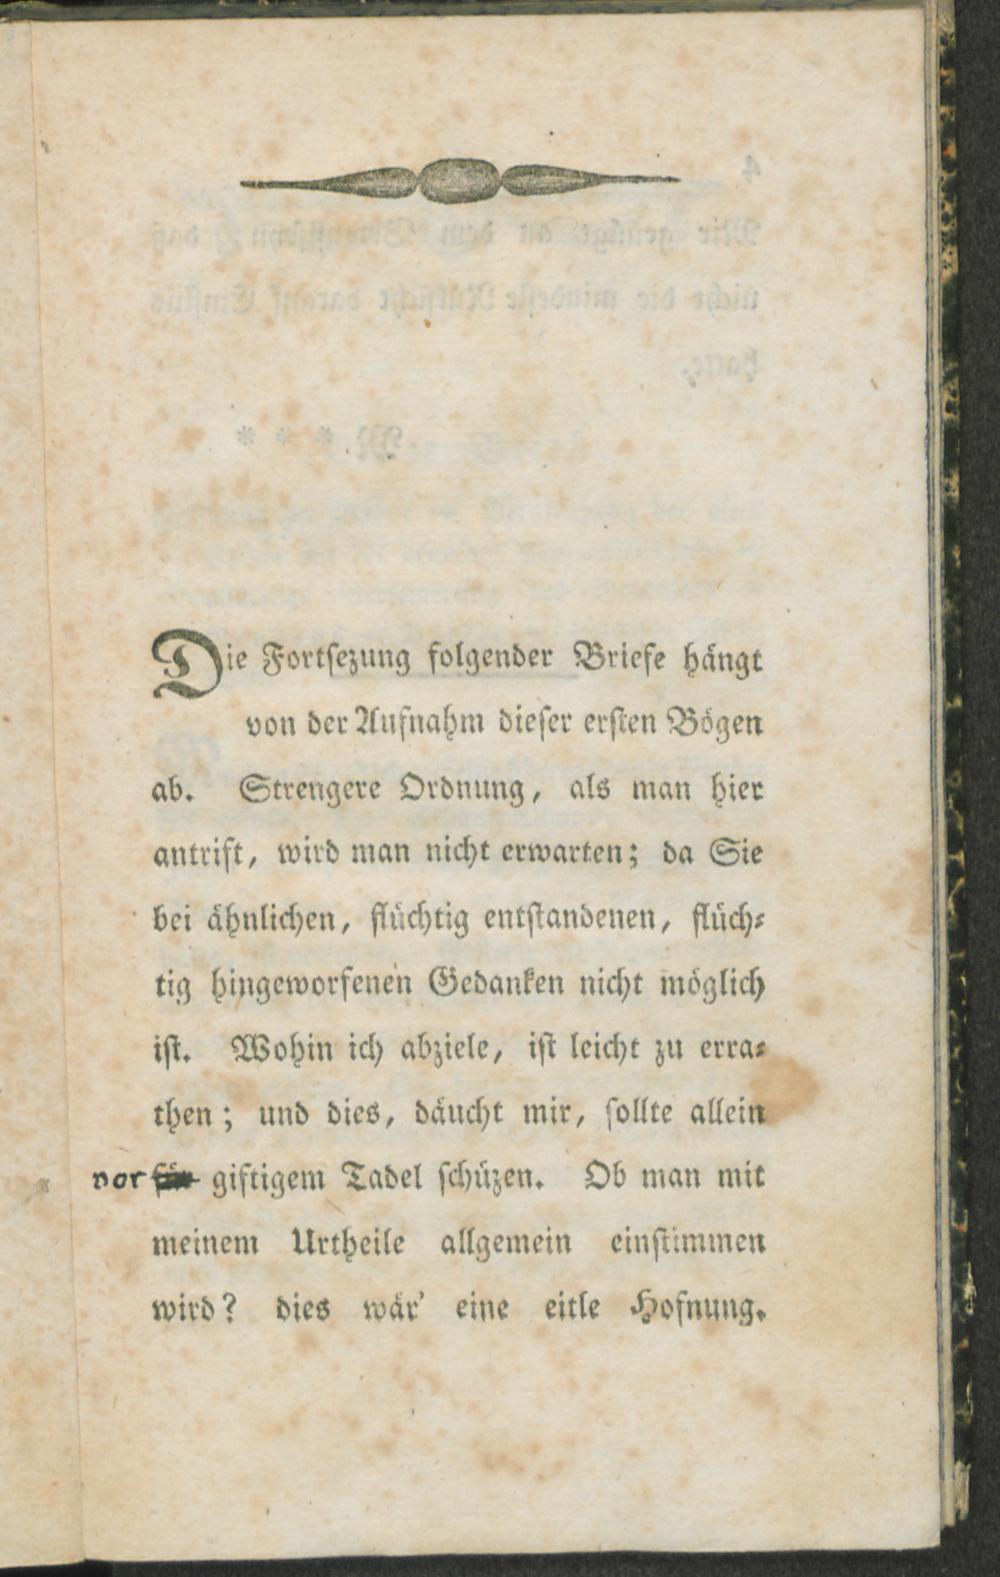 Die Fortsezung folgender Briefe hängt
von der Aufnahm dieser ersten Bögen
ab. Strengere Ordnung, als man hier
antrift, wird man nicht erwarten; da Sie
bei ähnlichen, flüchtig entstandenen, flüch-
tig hingeworfenen Gedanken nicht möglich
ist. Wohin ich abziele, ist leicht zu erra-
then; und dies, däucht mir, sollte allein
vor für giftigem Tadel schüzen. Ob man mit
meinem Urtheile allgemein einstimmen
wird? dies wär' eine eitle Hofnung.